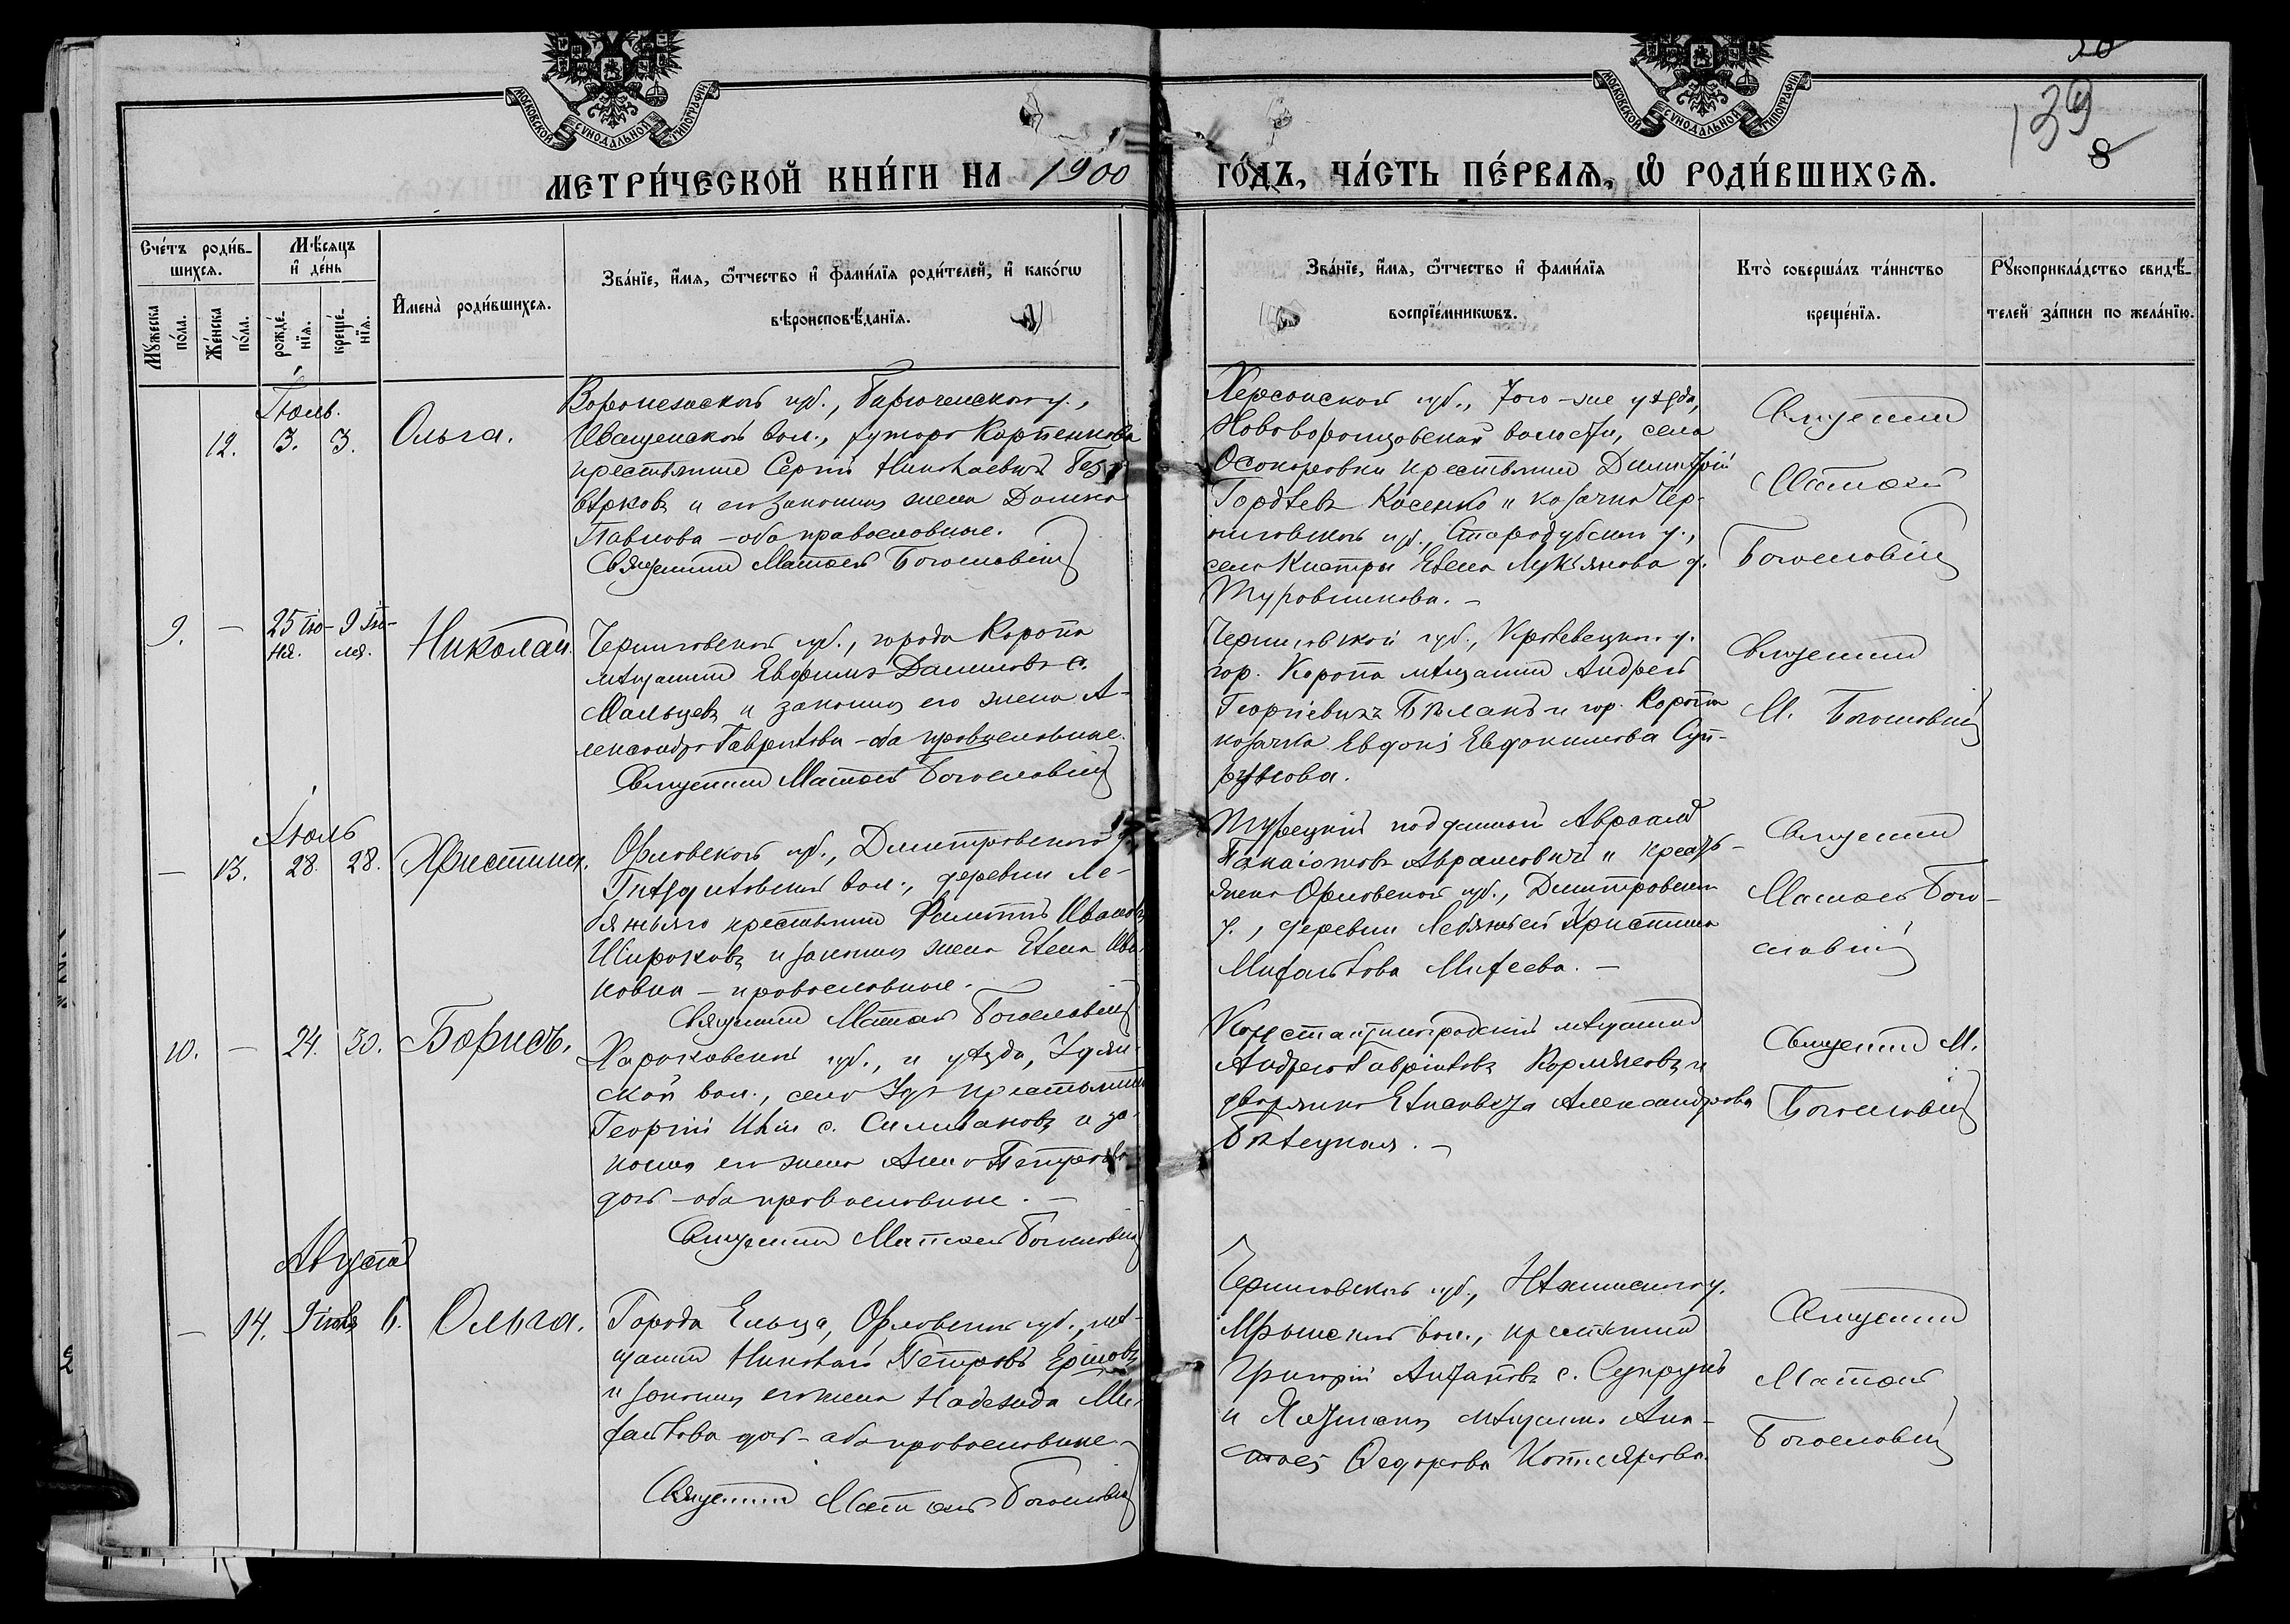 МОСКОВСКОЙ СѴНОДАЛЬНОЙ ТИПОГРАФІИ
МОСКОВСКОЙ СѴНОДАЛЬНОЙ ТИПОГРАФІИ
139
8
МЕТРИ́ЧЕСКОЙ КНИ́ГИ НА 1900 ГО́ДЪ, ЧА́СТЬ ПЕ́РВАѦ, Ѡ҆ РОДИ́ВШИХСѦ.
Сче́тъ роди́в-
шихсѧ.
Мꙋ́жеска по́ла.
Же́нска по́ла.
Мѣ́сѧцъ
и҆ де́нь
рожде́-нїѧ.
креще́-нїѧ.
И҆мена̀ роди́вшихсѧ.
Зва́нїе, и҆́мѧ, ѻ҆́тчество и҆ фами́лїѧ роди́телей, и҆ како́гѡ
вѣроисповѣ́данїѧ.
Зва́нїе, и҆́мѧ, ѻ҆́тчество и҆ фами́лїѧ
воспрїе́мникѡвъ.
Кто̀ соверша́лъ та́инство
креще́нїѧ.
Рꙋкоприкла́дство свидѣ́-
телей за́писи по жела́нїю.
Іюль.
12. 3. 3. Ольга.
Воронежской губ., Бирюченского у.,
Иващенской вол., хутора Карпенкова
крестьянин Сергій Николаевъ Без-
вѣрковъ и его законная жена Домна
Павлова – оба православные.
Священник Матвей Богословскій
Херсонской губ., того-же уѣзда,
Нововоронцовской волости, села
Осокоровки крестьянин Димитрій
Гордѣевъ Косенко и козачка Чер-
ниговской губ., Стародубского у.,
села Кистри Елена Лукьянова д.
Туровникова. –
Священник
Матвей
Богословскій
9. – 25 Ію- 9 Ію-
ня. ля.
Николай
Черниговской губ., города Коропа
мѣщанин Евфимъ Даниловъ с.
Мальцевъ и законная его жена А-
лександра Гаврилова – оба православные.
Священник Матвей Богословскій
Черниговской губ., Кролевецкого у.
гор. Коропа мѣщанин Андрей
Георгіевичъ Бѣланъ и гор. Коропа
козачка Евдокія Евдокимова Суп-
рунова.
Священник
М. Богословскій
Іюль
– 13. 28. 28. Христина.
Орловской губ., Дмитровского у.
Гнѣздиловской вол., деревни Ле-
бяжьяго крестьянин Филиппъ Ивановъ
Широковъ и законная жена Елена Ива-
новна – православные.
Священник Матвей Богословскій
Турецкій подданный Авраамъ
Панаіотовъ Аврамовичъ и кресть-
янка Орловской губ., Дмитровского
у., деревни Лебяжьей Христина
Михайлова Михеева. –
Священник
Матвей Бого-
словскій
10. – 24. 30. Борисъ.
Харьковской губ., и уѣзда, Удян-
ской вол., села Уды крестьянин
Георгій Ильин с. Селивановъ и за-
конная его жена Анна Петрова
дочь – оба православные. –
Священник Матвей Богословскій
Константиноградскій мѣщанин
Андрей Гавриловъ Кормяковъ и
дворянка Елисавета Александрова
Бѣлецкая. –
Священник М.
Богословскій
Августъ
– 14. 9 іюля 6. Ольга.
Города Ельца, Орловской губ., мѣ-
щанин Николай Петровъ Ершовъ
и законная его жена Надежда Ми-
хайлова дочь – оба православные. –
Священник Матвей Богословскій
Черниговской губ., Нѣжинского у.
Мрынской вол., крестьянин
Григорій с. Супрунъ
и мѣщанка Ана-
Федорова Котлярова.
Священник
Матвей
Богословскій